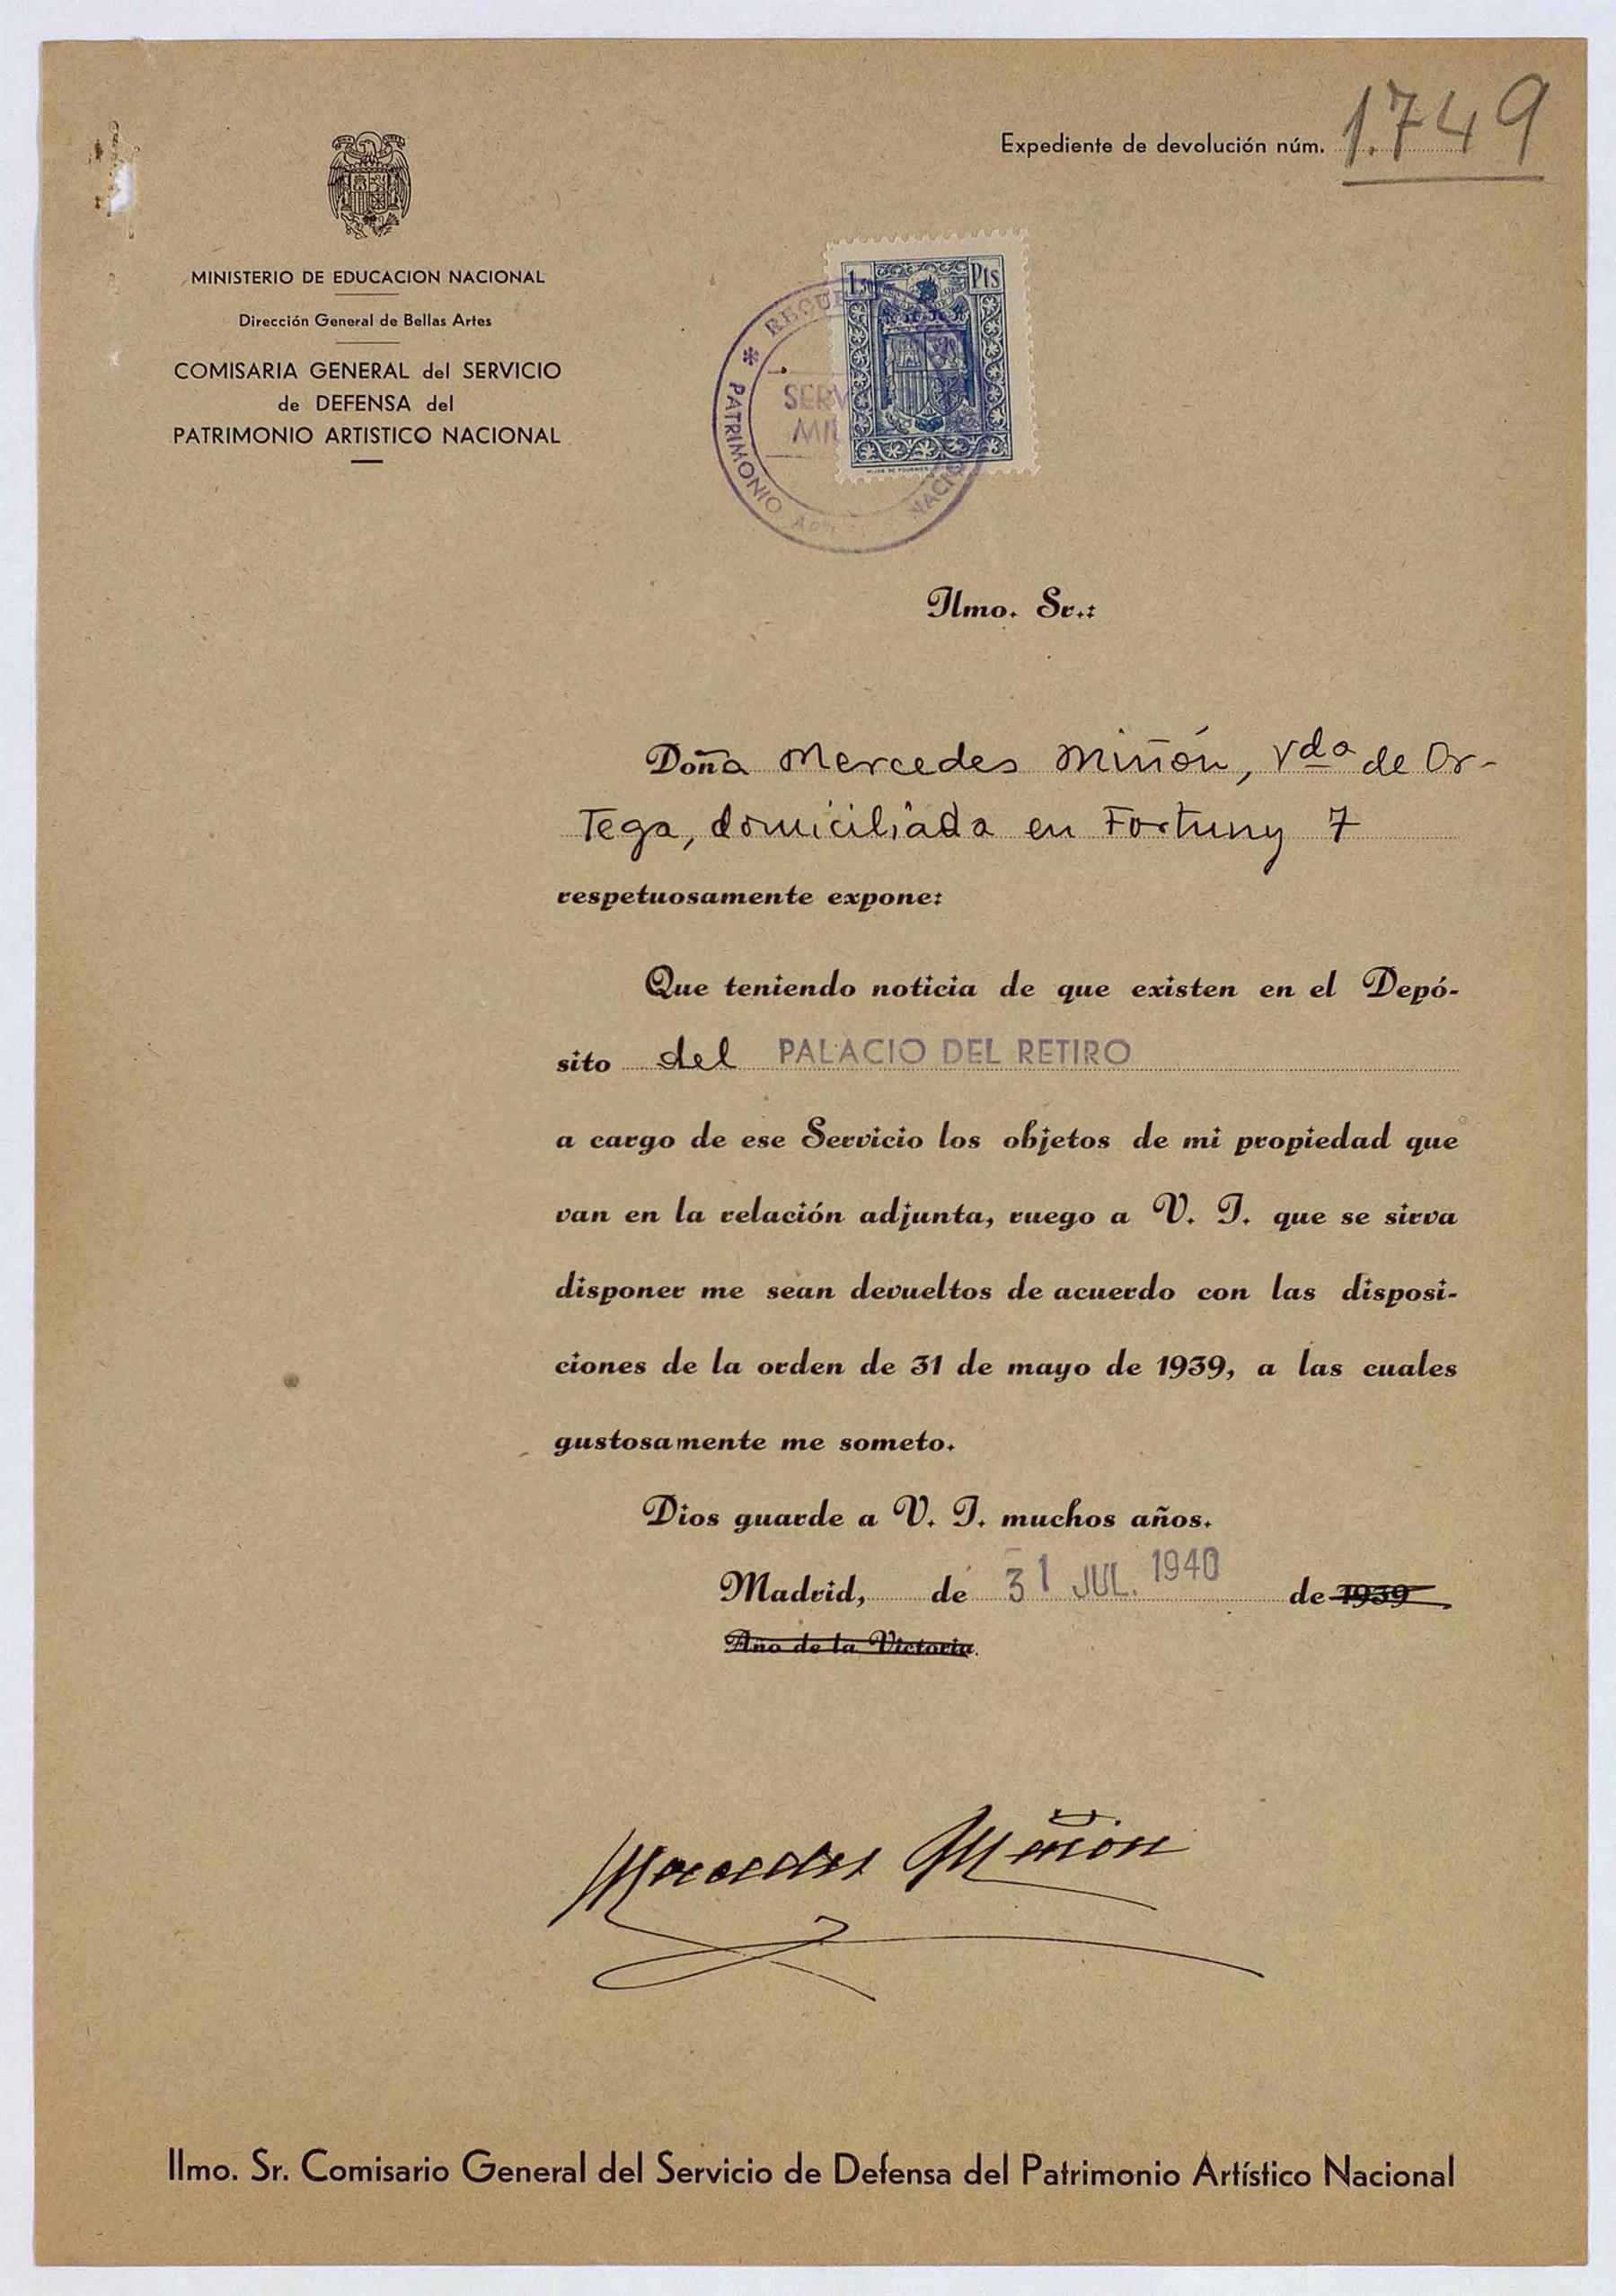 Expediente de devolución núm. 1.749
MINISTERIO DE EDUCACION NACIONAL
Dirección General de Bellas Artes
COMISARIA GENERAL del SERVICIO
de DEFENSA del
PATRIMONIO ARTISTICO NACIONAL
Pts
PATRIMONIO
Ilmo. Sr.:
Doña Mercedes Miñón, Vda de Or-
Tega, domiciliada en Fortuny 7
respetuosamente expone:
Que teniendo noticia de que existen en el Depó-
sito del PALACIO DEL RETIRO
a cargo de ese Servicio los objetos de mi propiedad que
van en la relación adjunta, ruego a V. I. que se sirva
disponer me sean devueltos de acuerdo con las disposi-
ciones de la orden de 31 de mayo de 1939, a las cuales
gustosamente me someto.
Dios guarde a V. I. muchos años.
Madrid, de 31 JUL. 1940 de 1939
Año de la Victoria.
Mercedes Miñón
Ilmo. Sr. Comisario General del Servicio de Defensa del Patrimonio Artístico Nacional